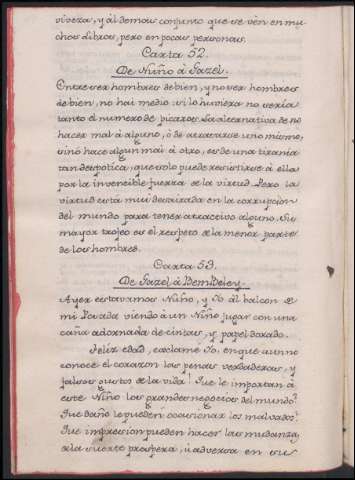 viveza, y ál demas conjunto que se vén en mu-
chos Libros, pero en pocas personas.
Carta 52.
De Nuño à Gazel.
Entre ser hombres de bien, y no ser hombres
de bien, no hai medio: si lo huviera no sería
tanto el numero de picaros. La alternativa de no
hacer mal à alguno, ò de atrasarse uno mismo,
sinò hace algun mal à otro, es de una tiranía
tan despotica, que solo puede resistirse à ella
por la invencible fuerza de la virtud. Pero la
virtud està mui desairada en la corrupcion
del mundo para tener atractivo alguno. Su
mayor trofeo es el respeto de la menor parte
de los hombres.
Carta 53.
De Gazel à Ben-Beley.
Ayer estavamos Nuño, y Yò àl balcon de
mi Posada viendo à un Niño jugar con una
caña adornada de cintas, y papel dorado.
Feliz edad, exclamè Yò, en que aun no
conoce el corazon las penas verdaderas, y
falsos gustos de la vida! Que le importan à
este Niño los grandes negocios del mundo?
Que daño le pueden ocasionar los malvados?
Que impresion pueden hacer las mudanzas
de la suerte prospera, ù adversa en su